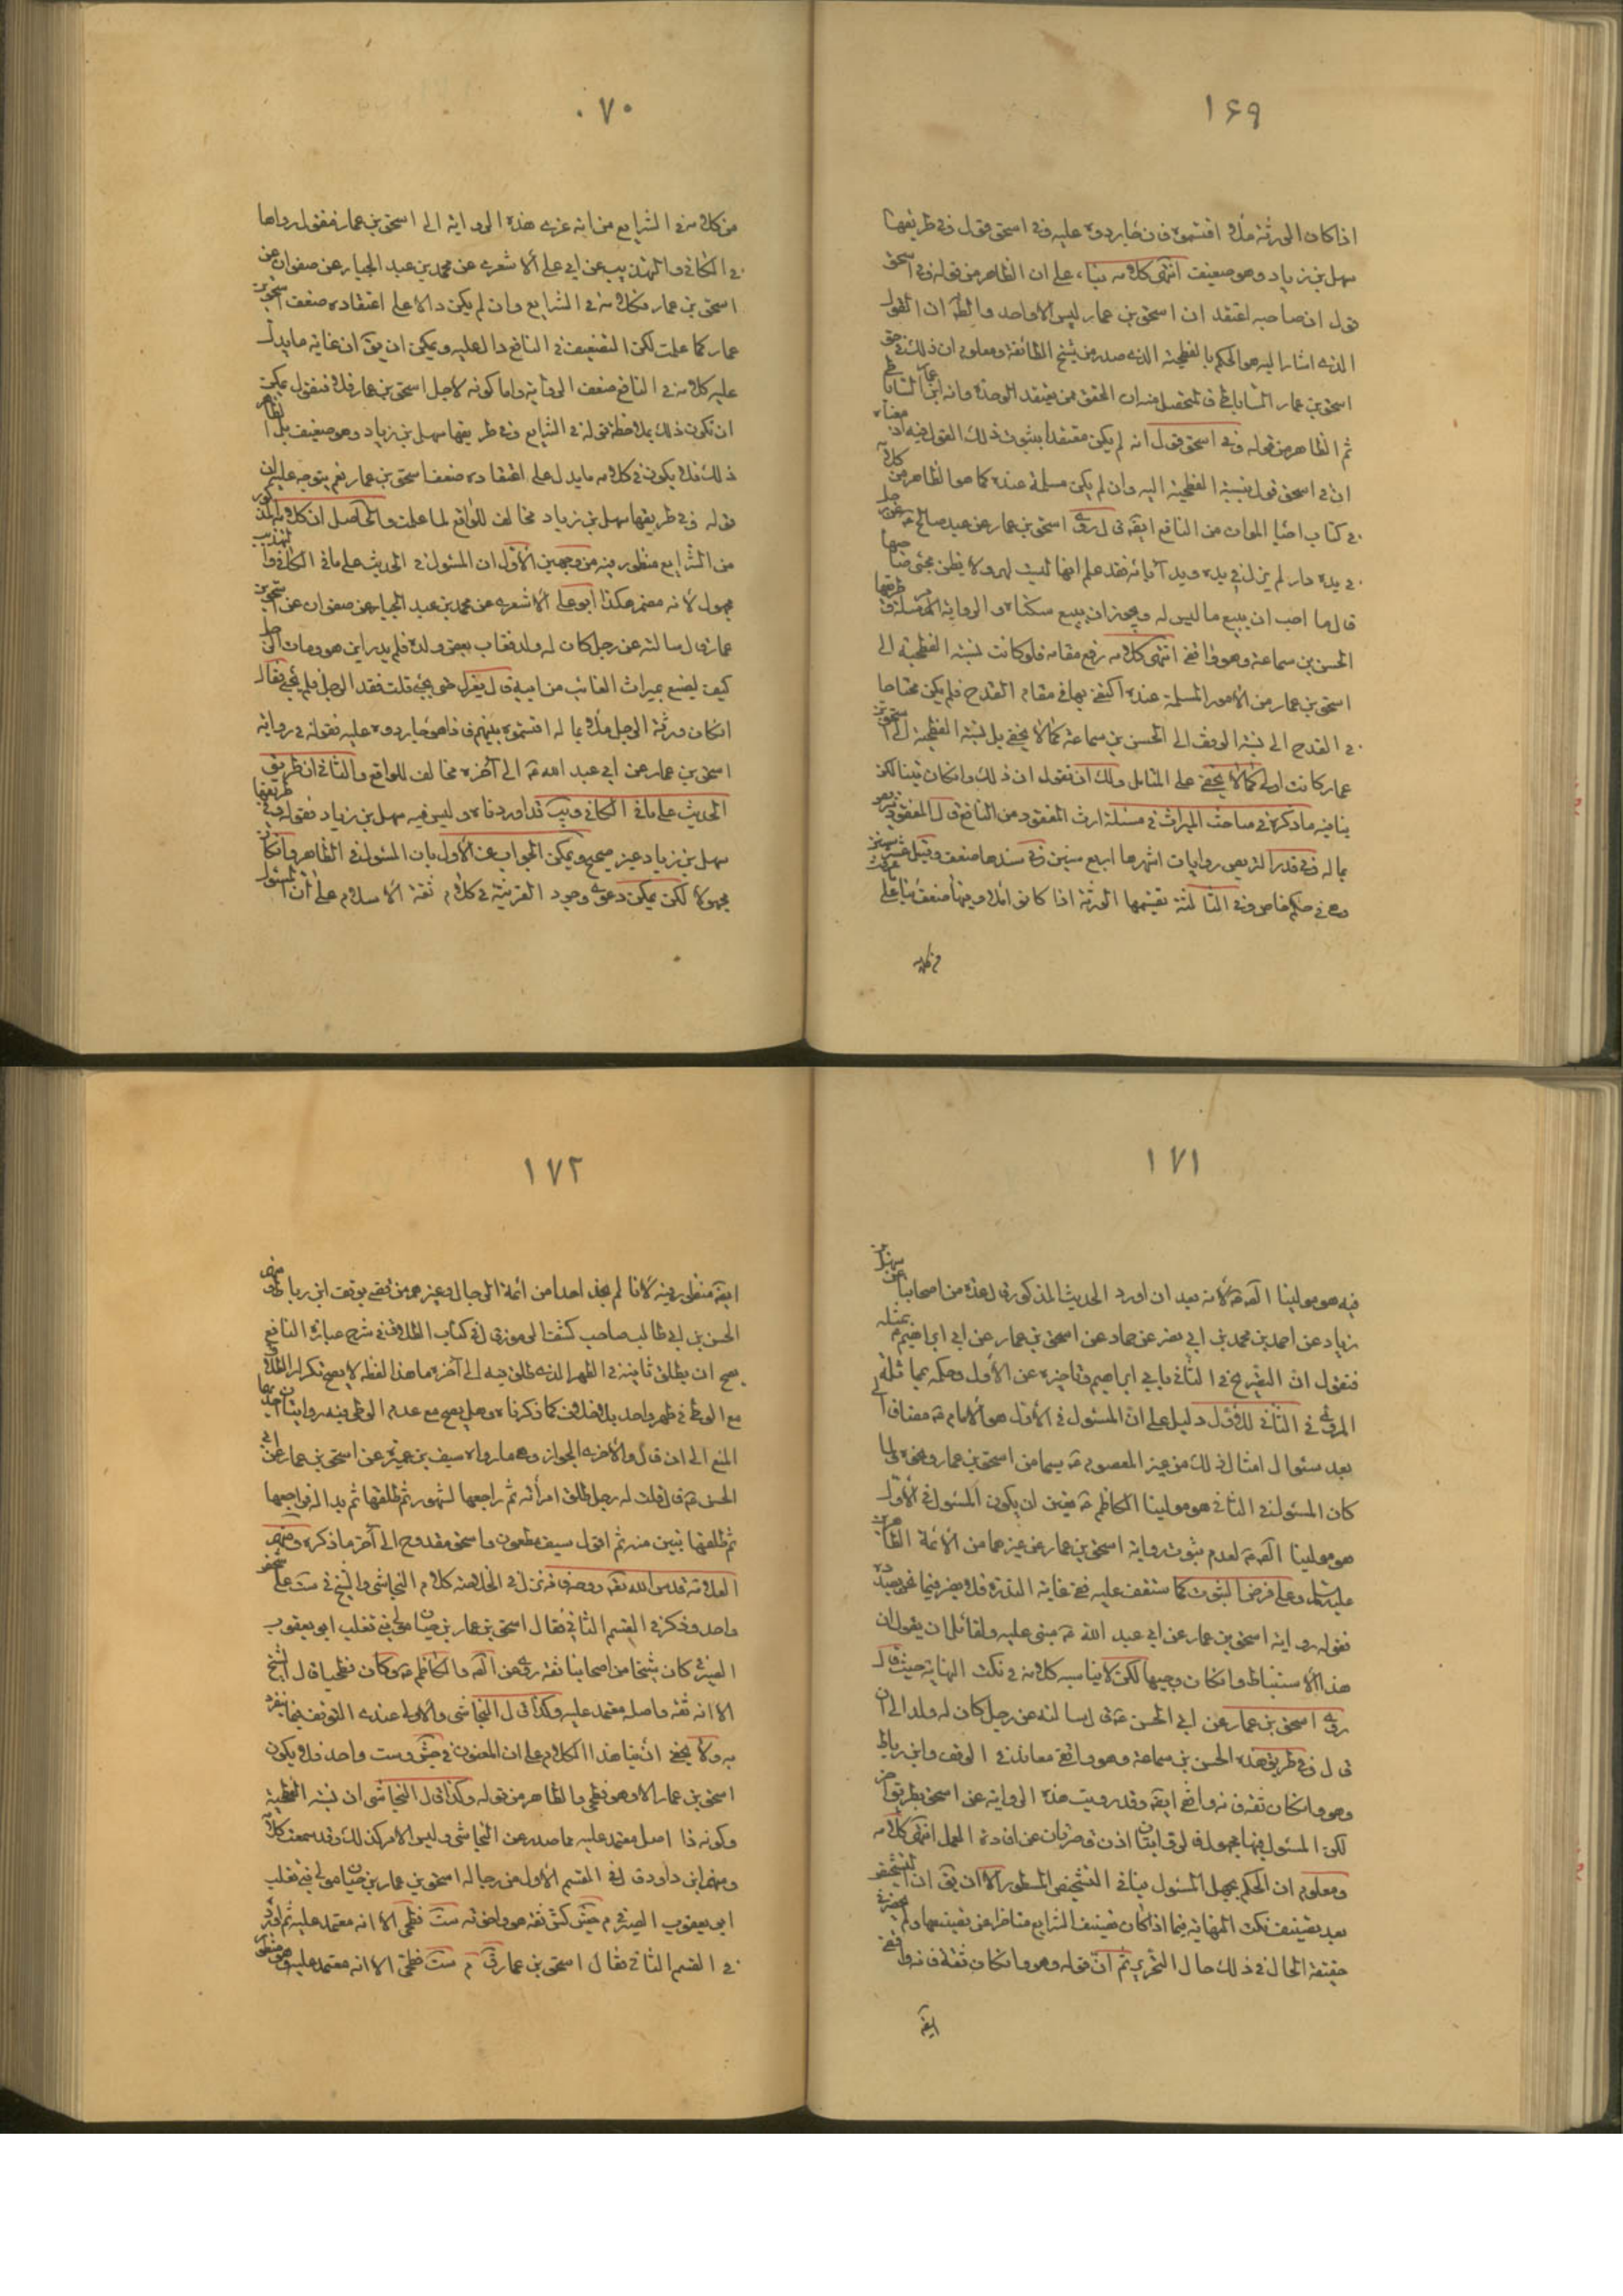 ۱۶۹
اذا كان الورثة ملاء اقتسموه فان جاء ردوه عليه وفى اسحق قول وفى طريقها
سهل بن زياد وهو ضعيف انتهى كلامه بناء على ان الظاهر من قوله وفى اسحق
قول ان صاحبه اعتقد ان اسحق بن عمار ليس الا واحد والظ ان القول
الذى اشار اليه هو الحكم بالفطحية الذى صدر من شيخ الطائفة ومعلوم ان ذلك فى حق
اسحق بن عمار الساباطى فالمتحصل منه ان المحقق ممن يعتقد الوحدة وانه ابن عمار الساباطى
ثم الظاهر من قوله وفى اسحق قول انه لم يكن معتقدا بثبوت ذلك القول فيه اذ معناه
ان فى اسحق قول بنسبة الفطحية اليه وان لم يكن مسلمة عنده كما هو الظاهر من كلامه
فى كتاب احياء الموات من النافع ايضه قال روى اسحق بن عمار عن عبد صالح عن رجل
فى يده دار لم يزل فى يده ويد آبائه قد علم انها ليست لهم ولا يظن مجئ صاحبها
قال ما احب ان يبيع ما ليس له ويجوز ان يبيع سكناه والرواية مرسلة وفى طريقها
الحسن بن سماعة وهو واقفى انتهى كلامه رفع مقامه فلو كانت نسبة الفطحية الى
اسحق بن عمار من الامور المسلمة عنده اكتفى بها فى مقام القدح فلم يكن محتاجا
فى القدح الى نسبة الوقف الى الحسن بن سماعة كما لا يخفى بل نسبة الفطحية الى اسحق بن
عمار كانت اولى كما لا يخفى على المتامل ولك ان تقول ان ذلك وان كان بينا لكن
ينافيه ما ذكره فى مباحث الميراث فى مسئلة ارث المفقود من النافع قال المفقود يتربص
بماله وفى قدر التربص روايات اشهرها اربع سنين وفى سندها ضعف وقيل عشر سنين
وهى فى حكم خاص وفى الثالثة يقتسمها الورثة اذا كانوا ملاء وفيها ضعف بناء على
من كلامه
۰۷۰
من كلامه فى الشرايع من انه عزى هذه الرواية الى اسحق بن عمار فنقول رواها
فى الكافى والتهذيب عن ابى على الاشعرى عن محمد بن عبد الجبار عن صفوان عن
اسحق بن عمار فكلامه فى الشرايع وان لم يكن دالا على اعتقاده ضعف اسحق بن
عمار كما علمت لكن التضعيف فى النافع دال عليه ويمكن ان يق ان غاية ما يدل
عليه كلامه فى النافع ضعف الرواية واما كونه لاجل اسحق بن عمار فلا فنقول يمكن
ان يكون ذلك بملاحظة قوله فى الشرايع وفى طريقها سهل بن زياد وهو ضعيف بل الظاهر
ذلك فلا يكون فى كلامه ما يدل على اعتقاده ضعف اسحق بن عمار نعم يتوجه عليه ان
قوله وفى طريقها سهل بن زياد مخالف للواقع لما علمت والحاصل ان كلامه المذكور
من الشرايع منظور فيه من وجهين الاول ان المسئول فى الحديث على ما فى الكافى والتهذيب
مجهول لانه مضمر هكذا ابو على الاشعرى عن محمد بن عبد الجبار عن صفوان عن اسحق بن
عمار قال سالته عن رجل كان له ولد فغاب بعض ولده فلم يدر اين هو ومات الرجل
كيف يصنع بميراث الغائب من ابيه قال يعزل حتى يجئ قلت فقد الرجل فلم يجئ فقال
ان كان ورثة الرجل ملاء بماله اقتسموه بينهم فاذا هو جاء ردوه عليه فقوله فى رواية
اسحق بن عمار عن ابى عبد الله ع الى آخره مخالف للواقع والثانى ان طريق
الحديث على ما فى الكافى ويب قد اوردناه وليس فيه سهل بن زياد فقوله وفى طريقها
سهل بن زياد غير صحيح ويمكن الجواب عن الاول بان المسئول فى الظاهر وان كان
مجهولا لكن يمكن دعوى وجود القرينة فى كلام ثقة الاسلام على ان المسئول
۱۷۱
فيه هو مولينا الص ع لانه بعد ان اورد الحديث المذكور قال عدة من اصحابنا عن سهل بن
زياد عن احمد بن محمد بن ابى نصر عن حماد عن اسحق بن عمار عن ابى ابراهيم ع بمثله
فنقول ان التصريح فى الثانى بابى ابراهيم وتاخيره عن الاول وحكمه بمماثلة
المروى فى الثانى للاول دليل على ان المسئول فى الاول هو الامام ع مضافا الى
بعد سئوال امثال ذلك من غير المعصوم ع سيما من اسحق بن عمار ونحوه ولما
كان المسئول فى الثانى هو مولينا الكاظم ع تعين ان يكون المسئول فى الاول
هو مولينا الص ع لعدم ثبوت رواية اسحق بن عمار عن غيرهما من الائمة الطاهرين
عليهم السلام وعلى فرض الثبوت كما ستقف عليه ففى غاية الندرة فلا يضر فيما نحن بصدده
فقوله رواية اسحق بن عمار عن ابى عبد الله ع مبنى عليه ولقائل ان يقول ان
هذا الاستنباط وان كان وجيها لكن لا يناسبه كلامه فى نكت النهاية حيث قال
روى اسحق بن عمار عن ابى الحسن ع قال سالته عن رجل كان له ولد الى ان
قال وفى طريق هذه الحسن بن سماعة وهو واقفى معاند فى الوقف وابن رباط
وهو وان كان ثقة فانه واقفى ايضه وقد رويت هذه الرواية عن اسحق بطريق آخر
لكن المسئول فيها مجهول فالروايتان اذن قاصرتان عن افادة العمل انتهى كلامه
ومعلوم ان الحكم بجهل المسئول ينافى التشخيص المسطور الا ان يق ان التشخيص
بعد تصنيف نكت النهاية فيما اذا كان تصنيف الشرايع متاخرا عن تصنيفها ولم يحضرنى
حقيقة الحال فى ذلك حال التحرير ثم ان قوله وهو وان كان ثقة فانه واقفى
ايضه
۱۷۲
ايضه منظور فيه لانا لم نجد احدا من ائمة الرجال وغيرهم من رمى بوقف ابن رباط
الحسن بن ابى طالب صاحب كشف الرموز قال فى كتاب الطلاق فى شرح عبارة النافع
يصح ان يطلق ثانية فى الطهر الذى طلق فيه الى آخره ما هذا لفظه لا يصح تكرار الطلاق
مع الوطى فى طهر واحد بلا خلاف كما ذكرناه وهل يصح مع عدم الوطى فيه روايتان احديهما
المنع الى ان قال والاخرى الجواز وهى ما رواه سيف بن عميرة عن اسحق بن عمار عن ابى
الحسن ع قال قلت له رجل طلق امرأته ثم راجعها بشهود ثم طلقها ثم بدا له فراجعها
ثم طلقها تبين منه ثم اقول سيف مطعون واسحق مقدوح الى آخر ما ذكره ومنهم
العلامة قدس الله تعه روحه فانه نزل فى الخلاصة كلام النجاشى والشيخ فى ست على شخص
واحد وذكره فى القسم الثانى فقال اسحق بن عمار بن حيان مولى بنى تغلب ابو يعقوب
الصيرفى كان شيخا من اصحابنا ثقة روى عن الص والكاظم ع وكان فطحيا قال الشيخ
الا انه ثقة واصله معتمد عليه وكذا قال النجاشى والاولى عندى التوقف فيما ينفرد
به ولا يخفى ان بناء هذا الكلام على ان المعنون فى جش وست واحد فلا يكون
اسحق بن عمار الا وهو فطحى والظاهر من قوله وكذا قال النجاشى ان نسبة الفطحية
وكونه ذا اصل معتمد عليه مما صدر عن النجاشى وليس الامر كذلك وقد سمعت كلامه
ومنهم ابن داود قال فى القسم الاول من رجاله اسحق بن عمار بن حيان مولى بنى تغلب
ابو يعقوب الصيرفى م جش كش ثقة هو واخوته ست فطحى الا انه معتمد عليه ثم اورد
فى القسم الثانى فقال اسحق بن عمار ق م ست فطحى الا انه معتمد عليه